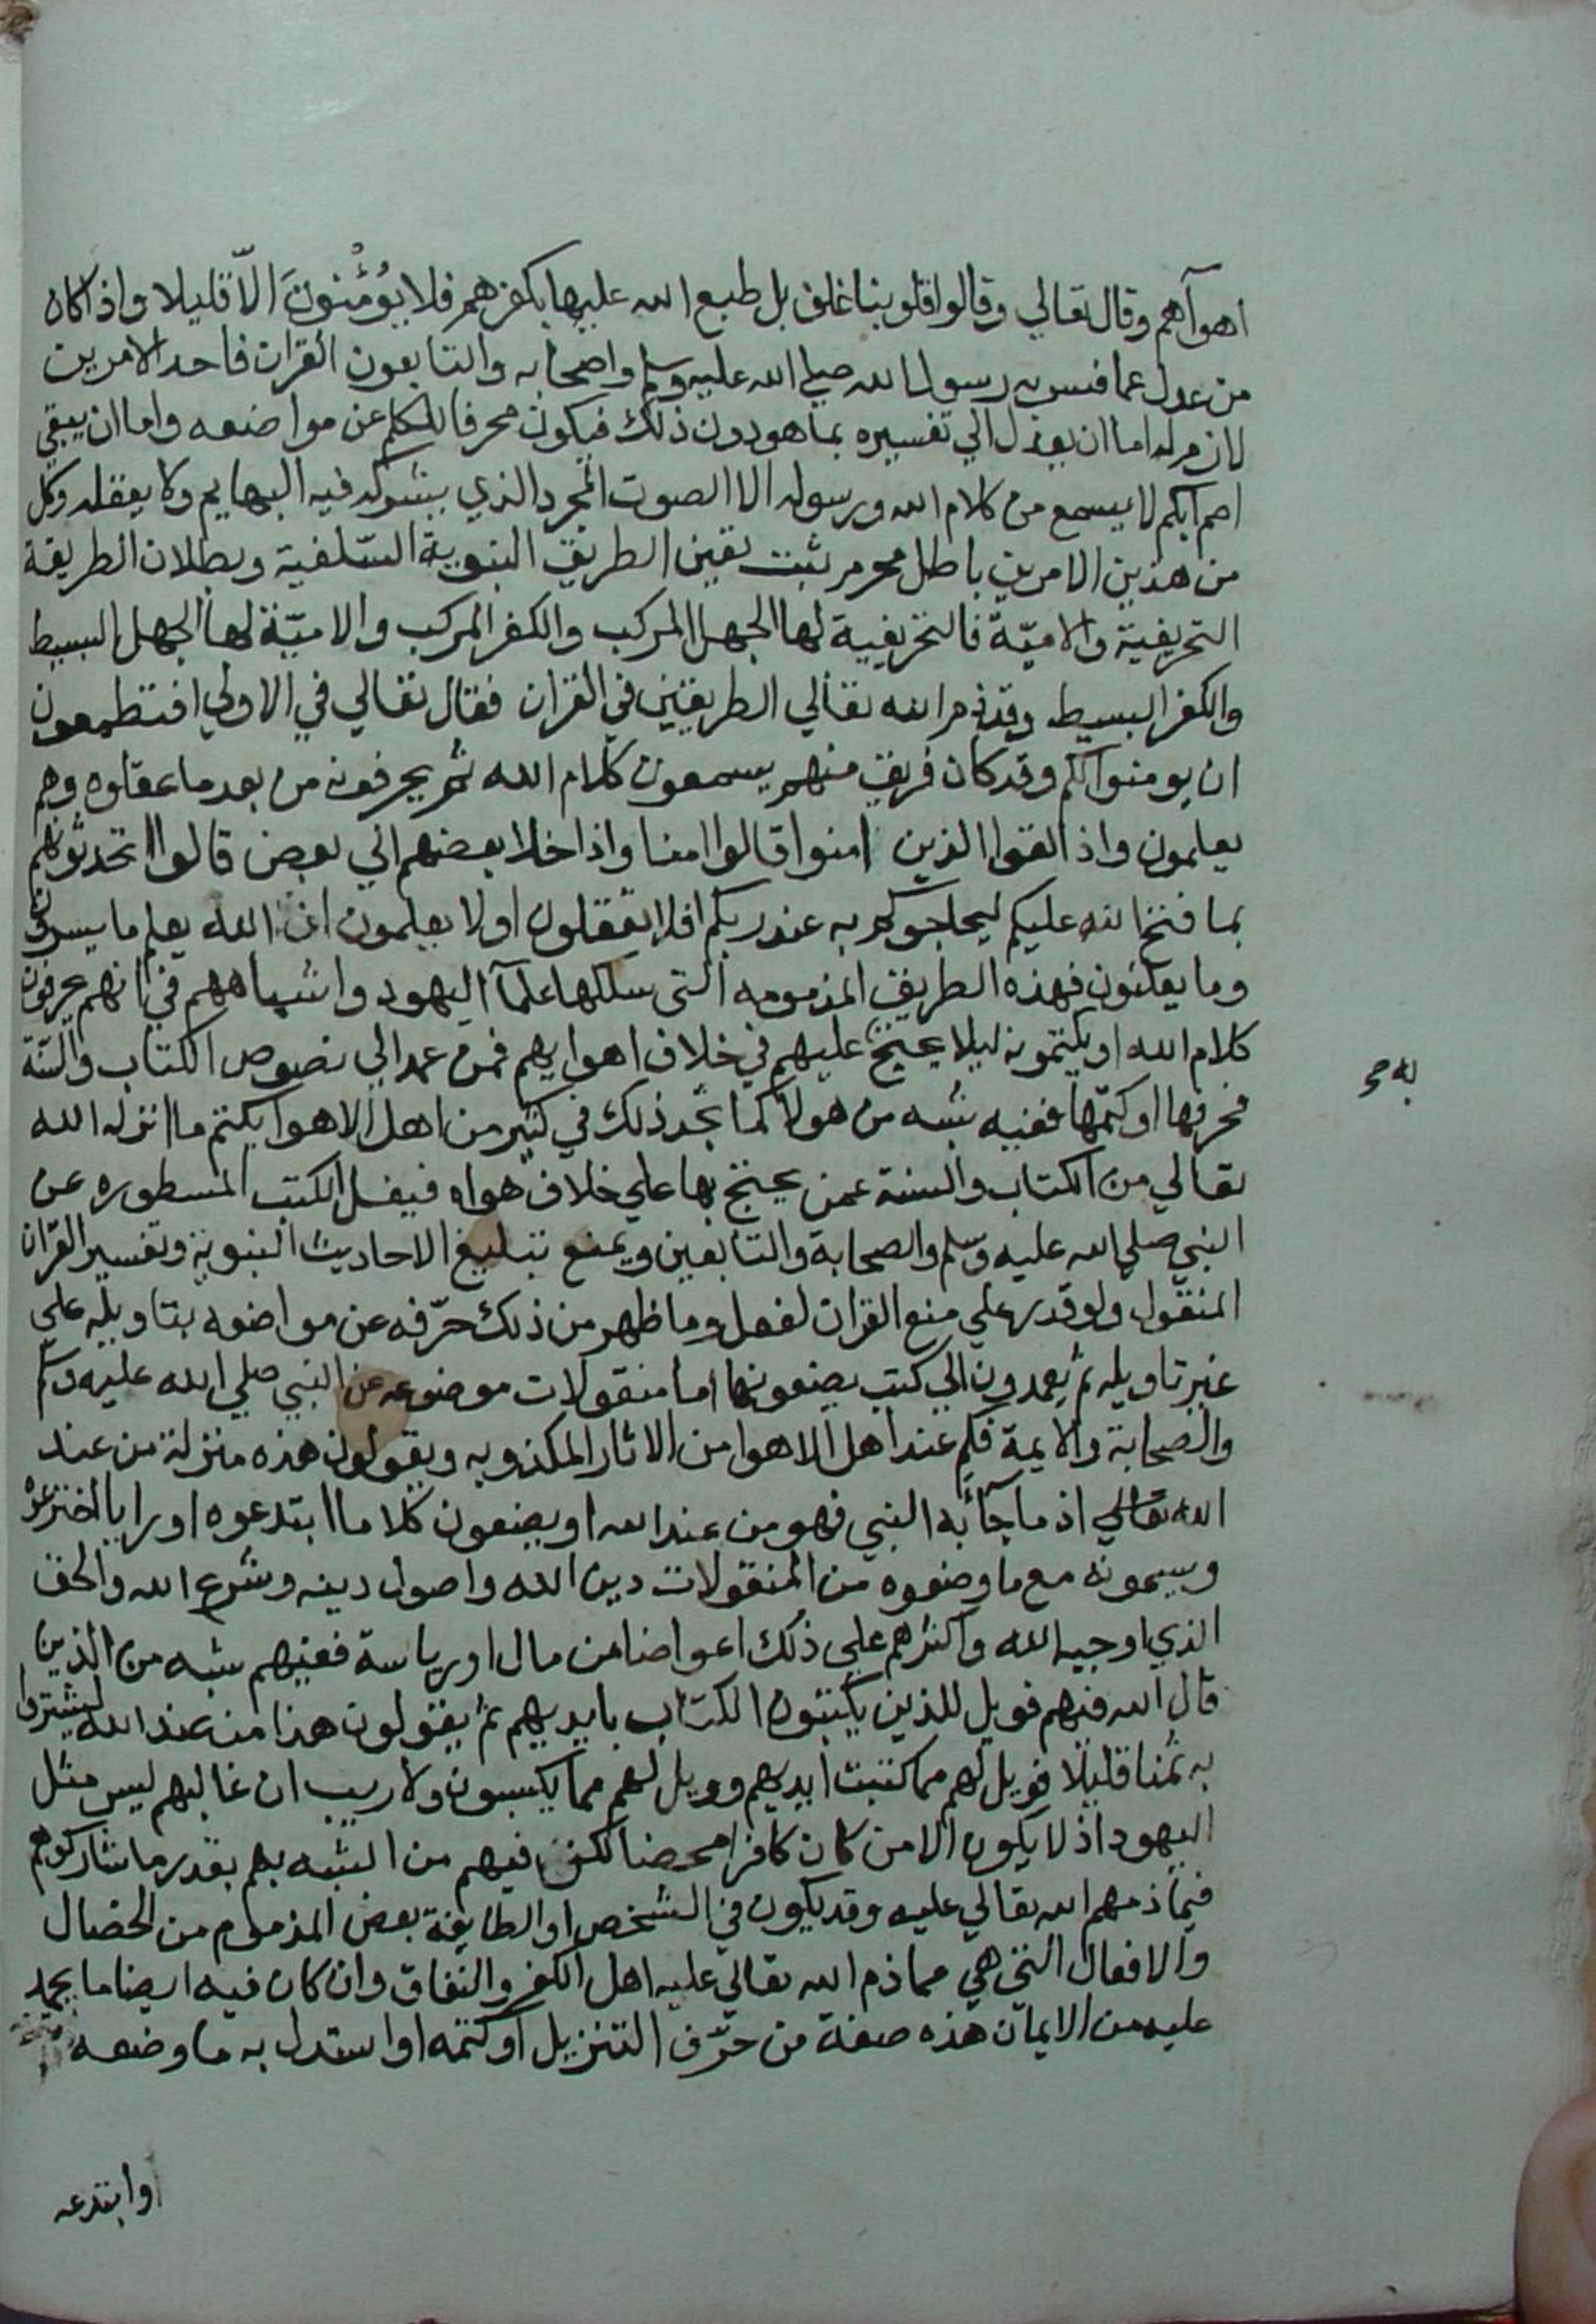 اهوآهم وقال تعالي وقالوا قلوبنا غلف بل طبع الله عليها بكفرهم فلا يُؤْمنُونَ الاّ قليلا واذا كان
من عدل عما فسر به رسول الله صلي الله عليه وسلم واصحابه والتابعون القران فاحد الامرين
لازم له اما ان يعدل الي تفسيره بما هو دون ذلك فيكون محرفا للكلم عن مواضعه واما ان يبقي
اصم ابكم لا يسمع من كلام الله ورسوله الا الصوت المجرد الذي يشركه فيه البهايم ولا يعقله وكل
من هذين الامرين باطل محرم ثبت تعين الطريق النبوية السّلفية وبطلان الطريقة
التحريفية والاميّة فالتحريفية لها الجهل المركب والكفر المركب والاميّة لها الجهل البسيط
والكفر البسيط وقد ذم الله تعالي الطريقتين في القران فقال تعالي في الاولي افتطمعون
ان يومنوا لكم وقد كان فريق منهم يسمعون كلام الله ثم يحرفونه من بعد ما عقلوه وهم
يعلمون واذا لقوا الذين امنوا قالوا امنا واذا خلا بعضهم الي بعض قالوا اتحدثونهم
بما فتح الله عليكم ليحاجوكم به عند ربكم افلا تعقلون اولا يعلمون ان الله يعلم ما يسرون
وما يعلنون فهذه الطريق المذمومه التي سلكها علمآ اليهود واشباههم في انهم يحرفون
كلام الله او يكتمونه ليلا يحتج عليهم في خلاف اهوايهم فمن عمد الي نصوص الكتاب والسّنة
فحرفها او كتمها ففيه شبه من هولآ كما تجد ذلك في كثير من اهل الاهوا يكتم ما انزله الله
تعالي من الكتاب والسنة عمن يحتج بها علي خلاف هواه فيغل الكتب المسطوره عن
النبي صلي الله عليه وسلم والصحابة والتابعين ويمنع تبليغ الاحاديث النبوية وتفسير القران
المنقول ولو قدر علي منع القران لفعل وما ظهر من ذلك حرّفه عن مواضعه بتاويله علي
غير تاويله ثم يعمدون الي كتب يضعونها اما منقولات موضوعه عن النبي صلي الله عليه وسلم
والصحابة والايمة فكم عند اهل الاهوا من الاثار المكذوبه ويقولون هذه منزلة من عند
الله تعالي اذ ما جآئ به النبي فهو من عند الله او يضعون كلاما ابتدعوه او رايا اخترعوه
ويسمونه مع ما وضعوه من المنقولات دين الله واصول دينه وشرع الله والحق
الذي اوجبه الله واكثرهم علي ذلك اعواضا من مال او رياسة ففيهم شبه من الذين
قال الله فيهم فويل للذين يكتبون الكتاب بايديهم ثم يقولون هذا من عند الله ليشتروا
به ثمنا قليلا فويل لهم مما كتبت ايديهم وويل لهم مما يكسبون ولا ريب ان غالبهم ليس مثل
اليهود اذ لا يكون الا من كان كافرا محضا لكن فيهم من الشبه بهم بقدر ما شاركوهم
فيما ذمهم الله تعالي عليه وقد يكون في الشخص او الطايفة بعض المذموم من الخصال
والافعال التي هي مما ذم الله تعالي عليه اهل الكفر والنفاق وان كان فيه ايضا ما يحمد
عليه من الايمان هذه صفة من حرّف التنزيل او كتمه او استدل به ما وضعه
او ابتدعه